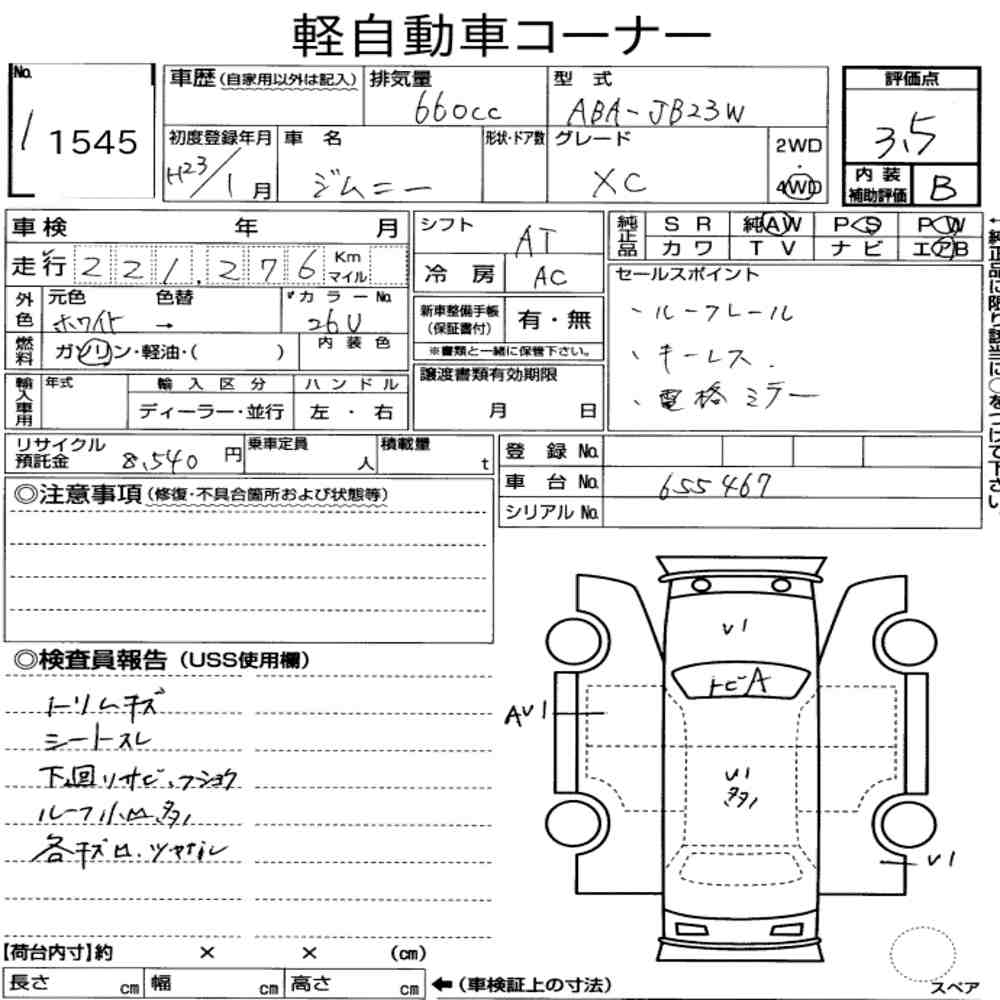 軽自動車コーナー
No. 1 1545
車歴(自家用以外は記入) 排気量 660cc 型式 ABA-JB23W
初度登録年月 H23/1月 車名 ジムニー 形状・ドア数 グレード XC 2WD・4WD
評価点 3.5
内装補助評価 B
車検 年 月
走行 221,276 Km マイル
外色 元色 ホワイト 色替 → カラーNo. 26U
燃料 ガソリン・軽油・( ) 内装色
輸入車用 年式 輸入区分 ディーラー・並行 ハンドル 左・右
リサイクル預託金 8,540円 乗車定員 人 積載量 t
シフト AT
冷房 AC
新車整備手帳(保証書付) 有・無
※書類と一緒に保管下さい。
譲渡書類有効期限
月 日
純正品 SR 純AW PS PW
カワ TV ナビ エアB
セールスポイント
、ルーフレール
、キーレス.
、電格ミラー
←純正品に限り該当に○をつけて下さい。
登録No.
車台No. 655467
シリアルNo.
◎注意事項(修復・不具合箇所および状態等)
◎検査員報告(USS使用欄)
トリムキズ
シートスレ
下回りサビ、フショク
ルーフ小凹多ノ
各キズ凹、
V1
トビA
AV1
U1
多ノ
V1
【荷台内寸】約 × × (cm)
長さ cm 幅 cm 高さ cm ←(車検証上の寸法)
スペア